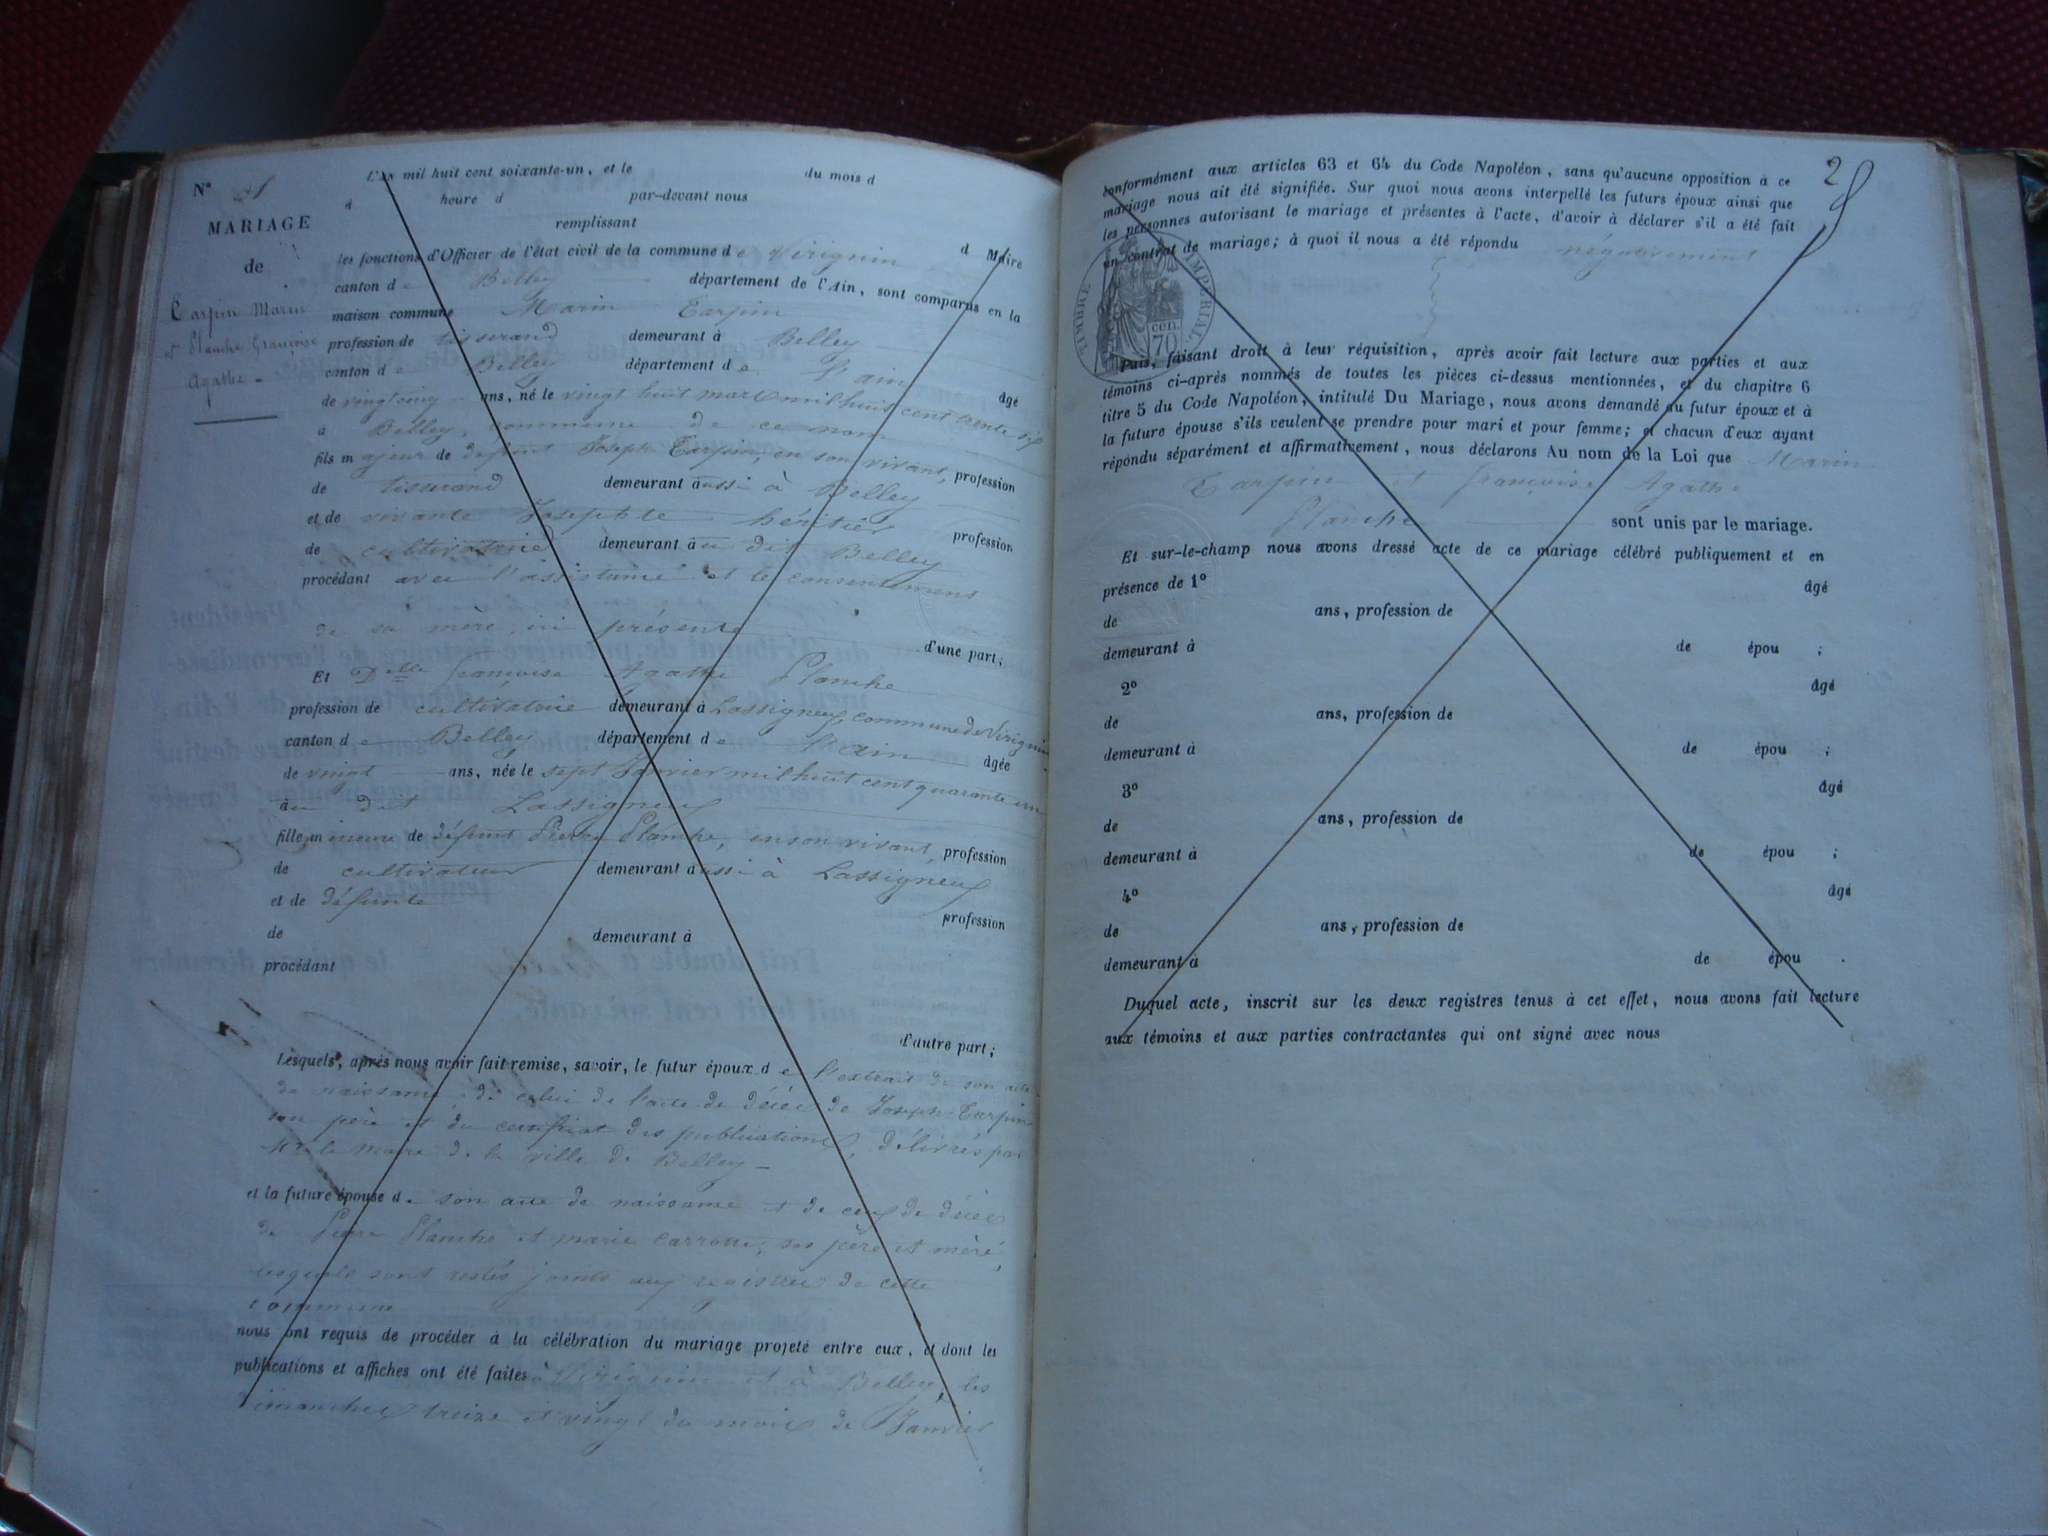 N°
MARIAGE
de
Tarpin Marin
et Planche Françoise
Agathe
L'an mil huit cent soixante-un, et le du mois d
à heure d par-devant nous
remplissant d Maire
les fonctions d'Officier de l'état civil de la commune de Virignin
canton de Belley département de l'Ain, sont comparus en la
maison commune Marin Tarpin
profession de tisserand demeurant à Belley
canton de Belley département de l'ain âgé
de vingt cinq ans, né le vingt huit mars mil huit cent trente six
à Belley, commune de ce nom
fils majeur de défunt Joseph Tarpin, en son vivant, profession
de tisserand demeurant aussi à Belley
et de vivante Josephte héritier profession
de cultivatrice demeurant au dit Belley
procédant avec l'assistance et le consentement
de sa mère, ici présente d'une part;
Et Delle françoise Agathe Planche
profession de cultivatrice demeurant à Lassigneux, commune de Virignin
canton de Belley département de l'ain âgée
de vingt ans, née le sept Janvier mil huit cent quarante un
au dit Lassigneux
fille mineure de défunt Pierre Planche, en son vivant, profession
de cultivateur demeurant aussi à Lassigneux
et de défunte profession
de demeurant à
procédant
d'autre part;
Lesquels, après nous avoir fait remise, savoir, le futur époux de l'extrait de son acte
de naissance, de celui de l'acte de décès de Joseph Tarpin
son père et du certificat des publications, délivrés par
Mr le Maire de la ville de Belley —
et la future épouse de son acte de naissance et de ceux de décès
de Pierre Planche et marie Carron, ses père et mère,
lesquels sont restés joints aux registres de cette
commune
nous ont requis de procéder à la célébration du mariage projeté entre eux, et dont les
publications et affiches ont été faites à Virignin et à Belley, les
Dimanches treize et vingt du mois de Janvier
2
conformément aux articles 63 et 64 du Code Napoléon, sans qu'aucune opposition à ce
mariage nous ait été signifiée. Sur quoi nous avons interpellé les futurs époux ainsi que
les personnes autorisant le mariage et présentes à l'acte, d'avoir à déclarer s'il a été fait
un contrat de mariage; à quoi il nous a été répondu négativement
TIMBRE IMPERIAL
70 cen.
Puis, faisant droit à leur réquisition, après avoir fait lecture aux parties et aux
témoins ci-après nommés de toutes les pièces ci-dessus mentionnées, et du chapitre 6
titre 5 du Code Napoléon, intitulé Du Mariage, nous avons demandé au futur époux et à
la future épouse s'ils veulent se prendre pour mari et pour femme; et chacun d'eux ayant
répondu séparément et affirmativement, nous déclarons Au nom de la Loi que Marin
Tarpin et françoise Agathe
Planche sont unis par le mariage.
Et sur-le-champ nous avons dressé acte de ce mariage célébré publiquement et en
présence de 1° âgé
de ans, profession de
demeurant à de épou ;
2° âgé
de ans, profession de
demeurant à de épou ;
3° âgé
de ans, profession de
demeurant à de épou ;
4° âgé
de ans, profession de
demeurant à de épou .
Duquel acte, inscrit sur les deux registres tenus à cet effet, nous avons fait lecture
aux témoins et aux parties contractantes qui ont signé avec nous